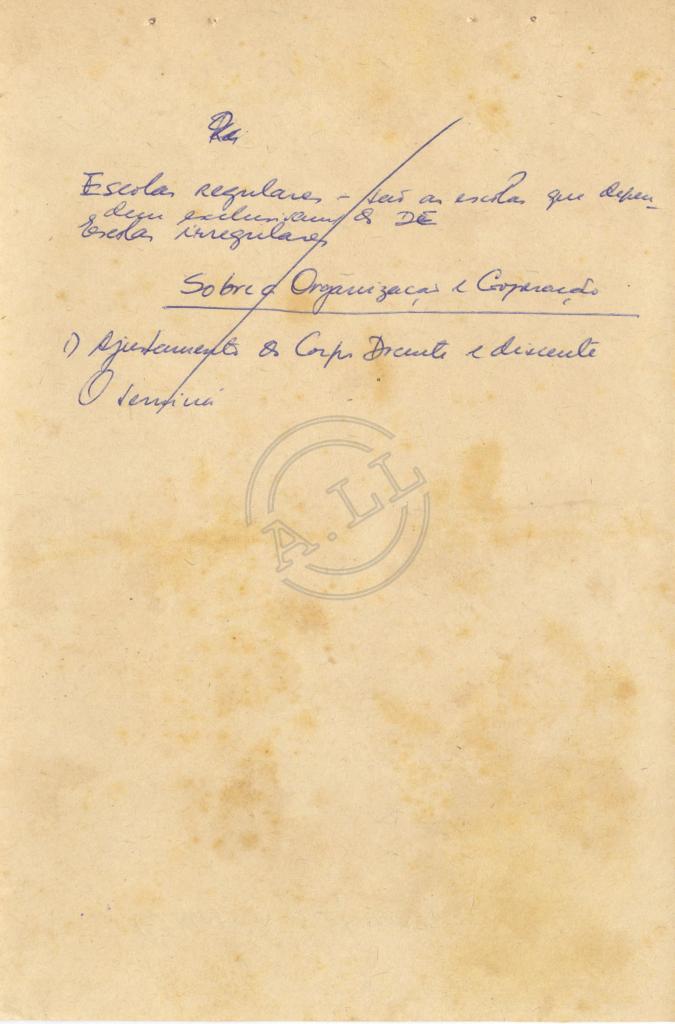 Escolas regulares – são as escolas que depen-
dem exclusivam do DE
Escolas irregulares
Sobre a Organização e Cooperação
1) Ajustamento do Corpo Docente e discente
O
A.LL